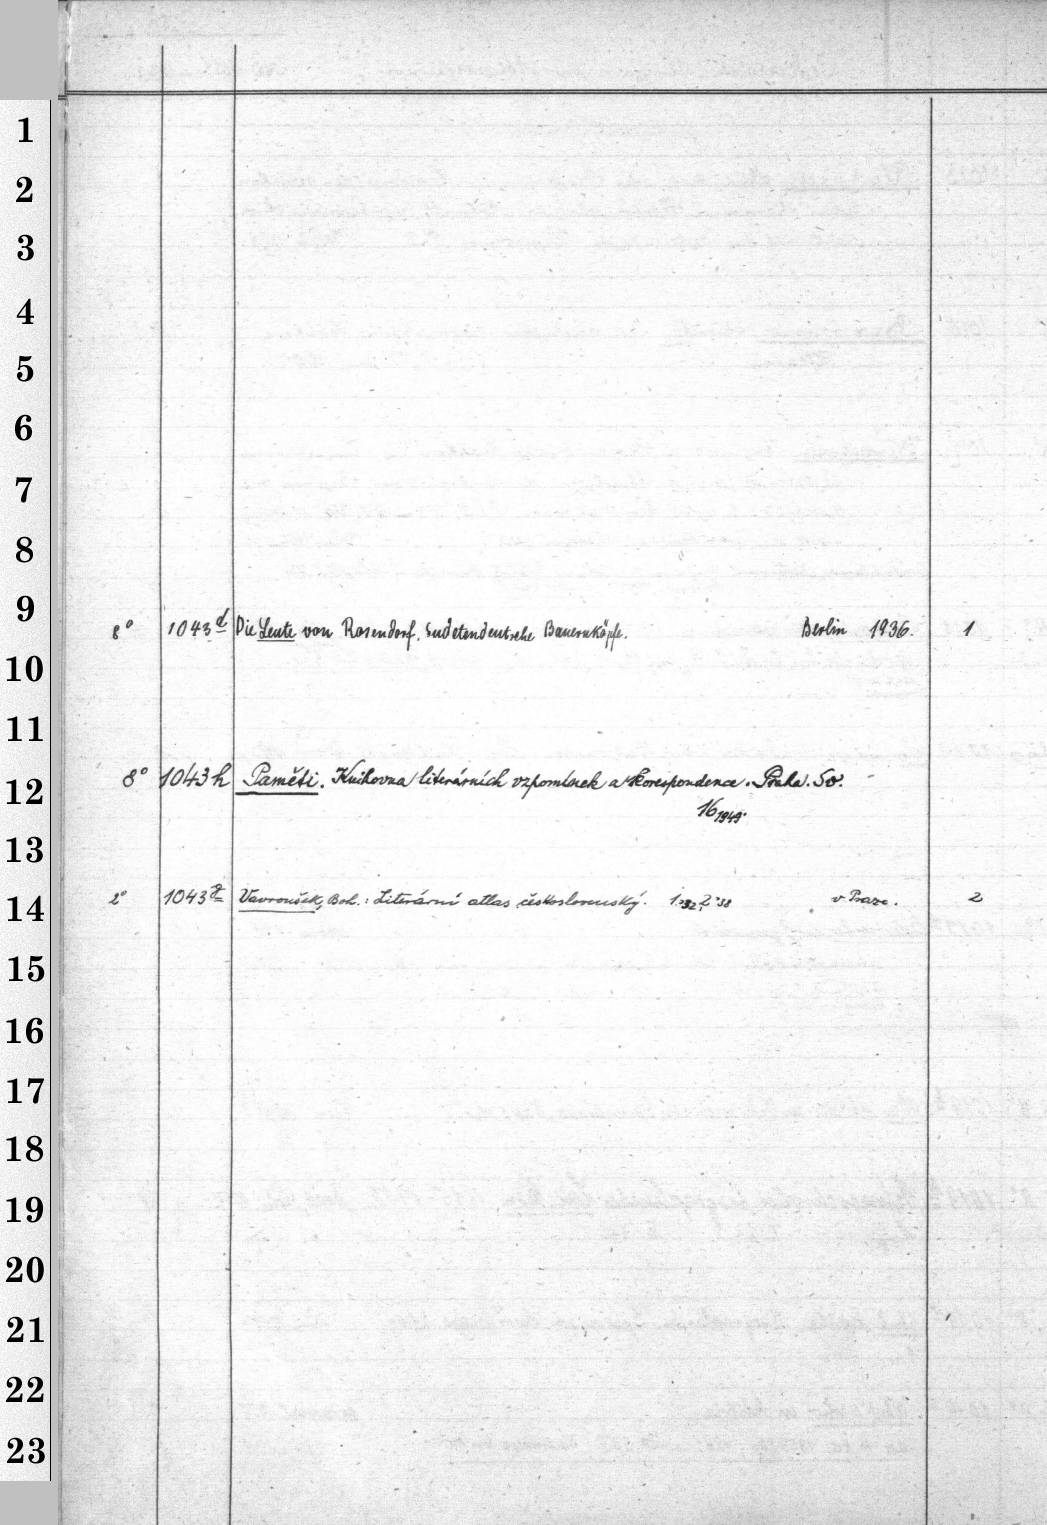 1
2
3
4
5
6
7
8
9
8° 1043 d Die Leute von Rosendorf. Sudetendeutsche Bauernköpfe. Berlin 1936. 1
10
11
8° 1043 h Paměti. Knihovna literárních vzpomínek a korespondence. Praha. So.
12
16 1949.
13
2° 1043 Vavroušek, Boh.: Literární atlas československý. 1.'32, 2.'38 v Praze. 2
14
15
16
17
18
19
20
21
22
23